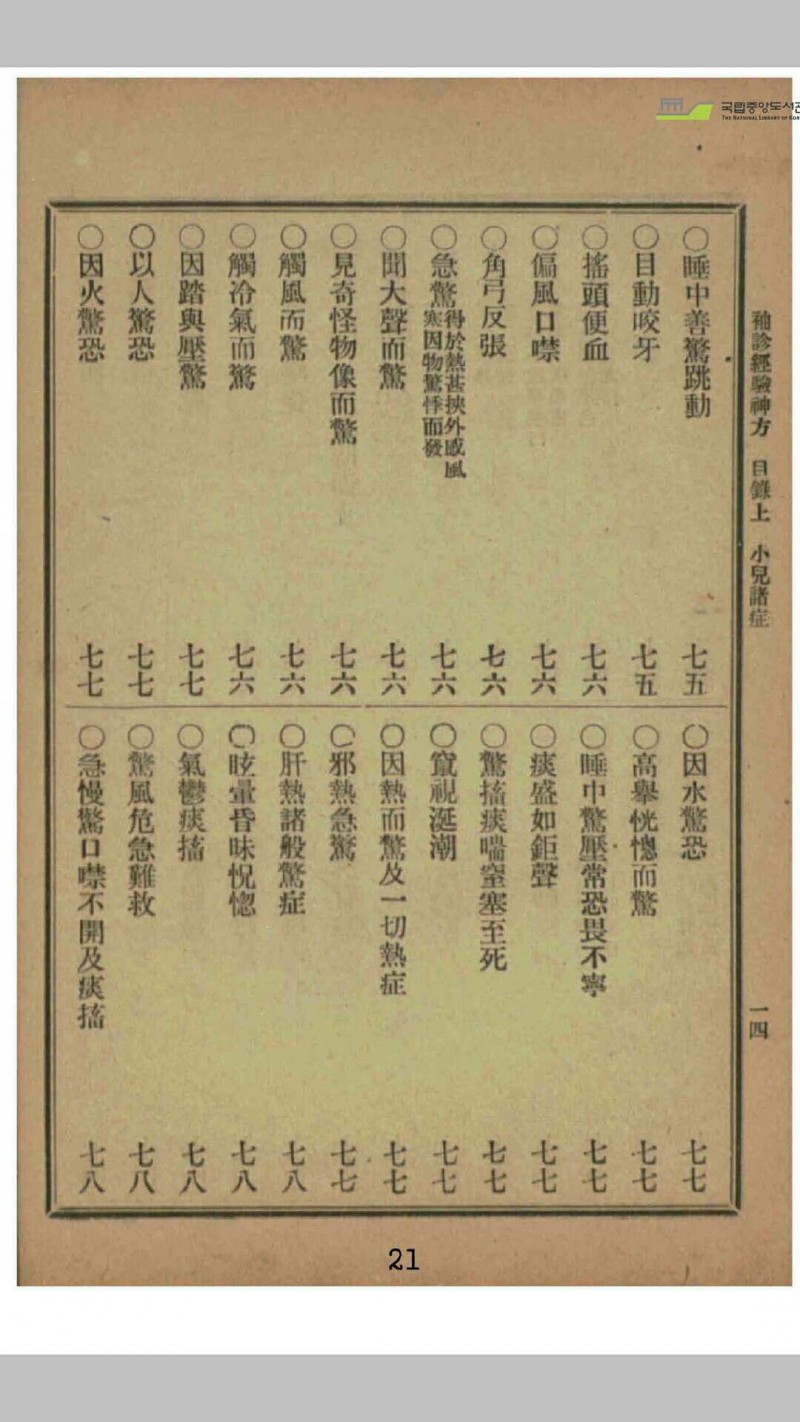 국립중앙도서관
THE NATIONAL LIBRARY OF KOR
袖診經驗神方 目錄上 小兒諸症 一四
〇睡中善驚跳動 七五
〇目動咬牙 七五
〇搖頭便血 七六
〇偏風口噤 七六
〇角弓反張 七六
〇急驚得於熱甚挾外感風寒因物驚悸而發 七六
〇聞大聲而驚 七六
〇見奇怪物像而驚 七六
〇觸風而驚 七六
〇觸冷氣而驚 七六
〇因踏與壓驚 七七
〇以人驚恐 七七
〇因火驚恐 七七
〇因水驚恐 七七
〇高舉恍憁而驚 七七
〇睡中驚壓常恐畏不寧 七七
〇痰盛如鉅聲 七七
〇驚搐痰喘窒塞至死 七七
〇竄視涎潮 七七
〇因熱而驚及一切熱症 七七
〇邪熱急驚 七七
〇肝熱諸般驚症 七八
〇眩暈昏昧怳惚 七八
〇氣鬱痰搐 七八
〇驚風危急難救 七八
〇急慢驚口噤不開及痰搐 七八
21